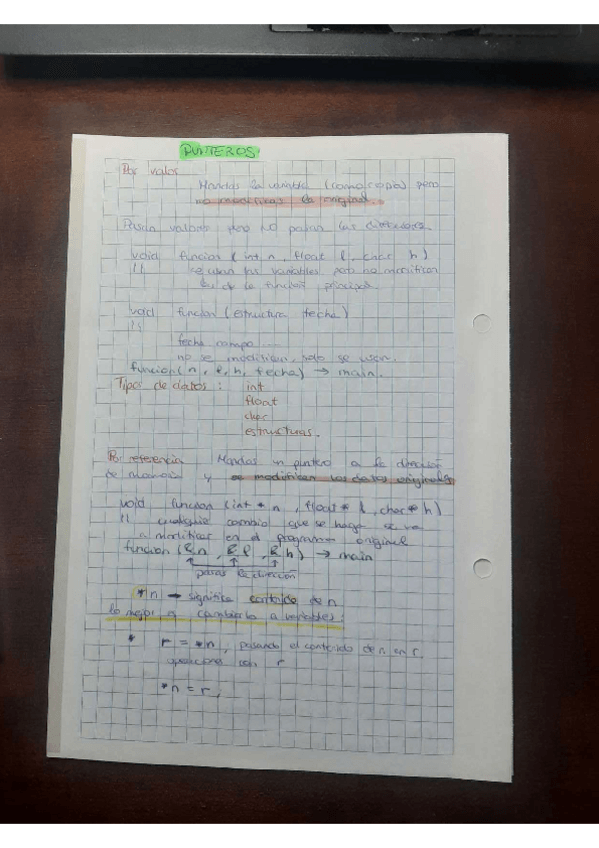 PUNTEROS
Por valor
Mandas la variable (como copia) pero
no modificas la original.
Pasan valores pero NO pasan las direcciones.
void funcion (int n, float l, char h)
// se usan las variables pero no modifican
las de la función principal.
void funcion (estructura fecha)
//
fecha campo ....
no se modifican, solo se usan.
funcion (n, l, h, fecha) → main.
Tipos de datos : int
float
char
estructuras.
Por referencia Mandas un puntero a la dirección
de memoria y se modifican los datos originales
void funcion (int * n , float * l , char * h)
// cualquier cambio que se haga se va
a modificar en el programa original
funcion (&n , &l , &h) → main
pasas la dirección
*n → significa contenido de n
lo mejor es cambiarlo a variables.
* r = *n , pasando el contenido de n en r.
operaciones con r
*n = r ,